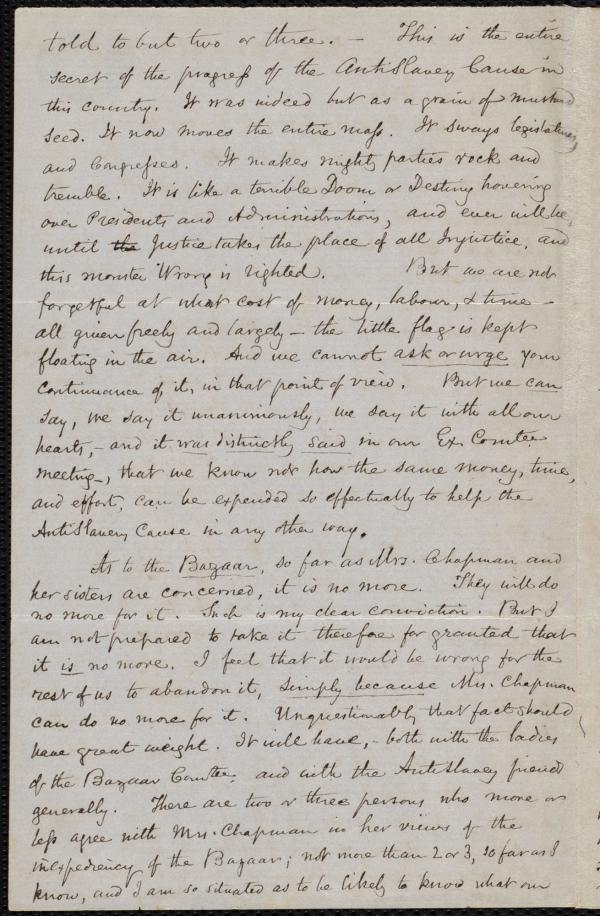 told to but two or three. — This is the entire
secret of the progress of the AntiSlavery Cause in
this country. It was indeed but as a grain of mustard
seed. It now moves the entire mass. It sways legislatures,
and Congresses. It makes mighty parties rock and
tremble. It is like a terrible Doom or Destiny hovering
over Presidents and Administrations, and ever will be,
until the Justice takes the place of all Injustice, and
this monster Wrong is righted. But we are not
forgetful at what cost of money, labour, & time —
all given freely and largely — the little flag is kept
floating in the air. And we cannot ask or urge your
continuance of it, in that point of view. But we can
say, we say it unanimously, we say it with all our
hearts, – and it was distinctly said in our Ex. Comtee
meeting –, that we know not how the same money, time,
and effort, can be expended so effectually to help the
AntiSlavery Cause in any other way.
As to the Bazaar, so far as Mrs. Chapman and
her sisters are concerned, it is no more. They will do
no more for it. Such is my clear conviction. But I
am not prepared to take it therefore for granted that
it is no more. I feel that it would be wrong for the
rest of us to abandon it, simply because Mrs. Chapman
can do no more for it. Unquestionably that fact should
have great weight. It will have, – both with the ladies
of the Bazaar Comtee. and with the AntiSlavery friends
generally. There are two or three persons who more or
less agree with Mrs. Chapman in her views of the
inexpediency of the Bazaar; not more than 2 or 3, so far as I
know, and I am so situated as to be likely to know what our